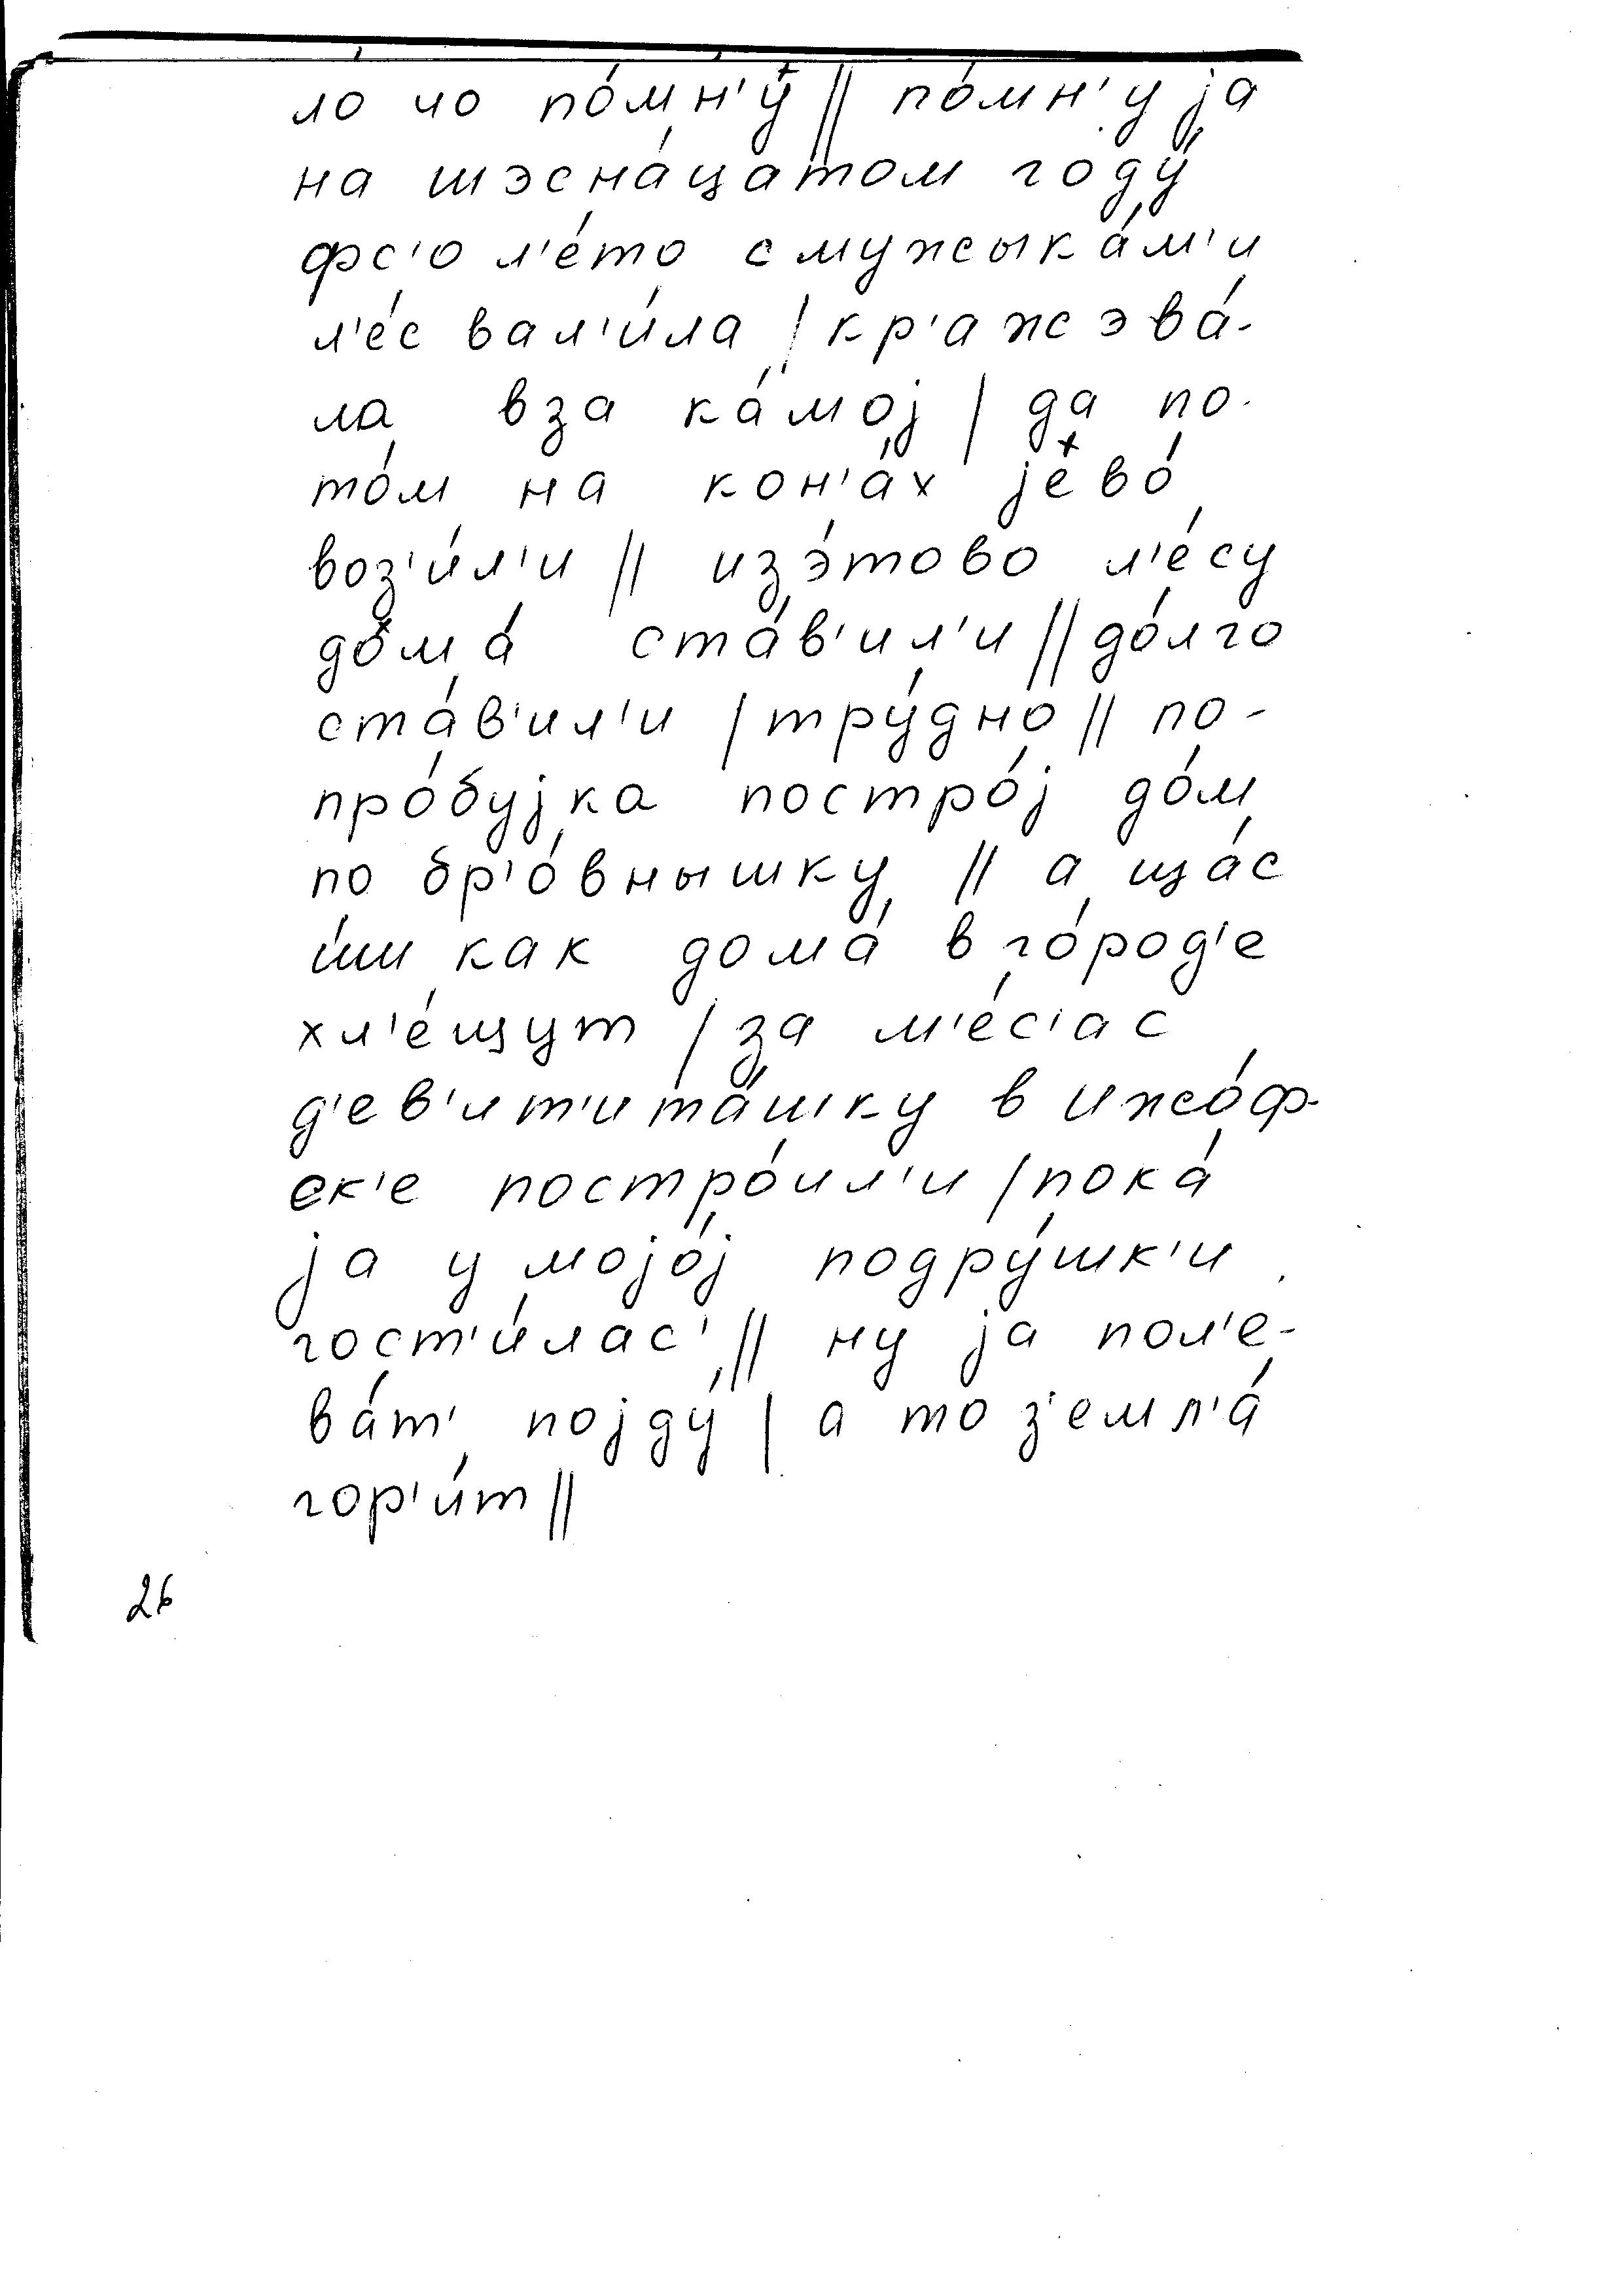 ло чо по́мн'у || по́мн'у jа
на шэсна́цатом году́
фс'о л'е́то с мужыка́м'и
л'е́с вал'и́ла | кр'ажэва́-
ла вза ка́мој | да по-
то́м на кон'а́х jево́
воз'и́л'и || изэ́тово л'е́су
дома́ ста́в'ил'и || до́лго
ста́в'ил'и | тру́дно || по-
про́бујка постро́ј до́м
по бр'о́внышку || а ща́с
и́ши как дома́ в го́род'е
хл'е́щут | за м'е́с'ас
д'ев'ит'ита́шку в ижо́ф-
ск'е постро́ил'и | пока́
jа у мојо́ј подру́шк'и
гост'и́лас' || ну jа пол'е-
ва́т' појду́ | а то з'емл'а́
гор'и́т ||
26